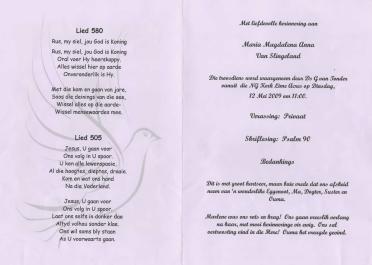 Lied 580
Rus, my siel, jou God is Koning
Rus, my siel, jou God is Koning
Oral voer Hy heerskappy.
Alles wissel hier op aarde
Onveranderlik is Hy.
Met die kom en gaan van jare,
Soos die deinings van die see,
Wissel alles op die aarde-
Wissel mensewaardes mee.
Lied 505
Jesus, U gaan voor
Ons volg in U spoor.
U ken alle lewenspasie,
Al die hoogtes, dieptes, draaie.
Kom en wat ons hand
Na die Vaderland.
Jesus, U gaan voor
Ons volg in U spoor,
Laat ons selfs in donker dae
Altyd volhou sonder klae.
Ons wil soms bly staan
As U voorwaarts gaan.
Met liefdevolle herinnering aan
Maria Magdalena Anna
Van Slingeland
Die troosdiens word waargeneem deur Ds G van Tonder
vanuit die NG Kerk Elms Acres op Dinsdag,
12 Mei 2009 om 11:00.
Verassing: Privaat
Skriflesing: Psalm 90
Bedankings
Dit is met groot hartseer, maar baie vrede dat ons afskeid
neem van 'n wonderlike Eggenoot, Ma, Dogter, Suster en
Ouma.
Marlene was ons rots en krag! Ons gaan vreeslik verlang
na haar, met mooi herinneringe vir ewig. Ons sal
vertroosting vind in die Here! Ouma het vreugde gevind.